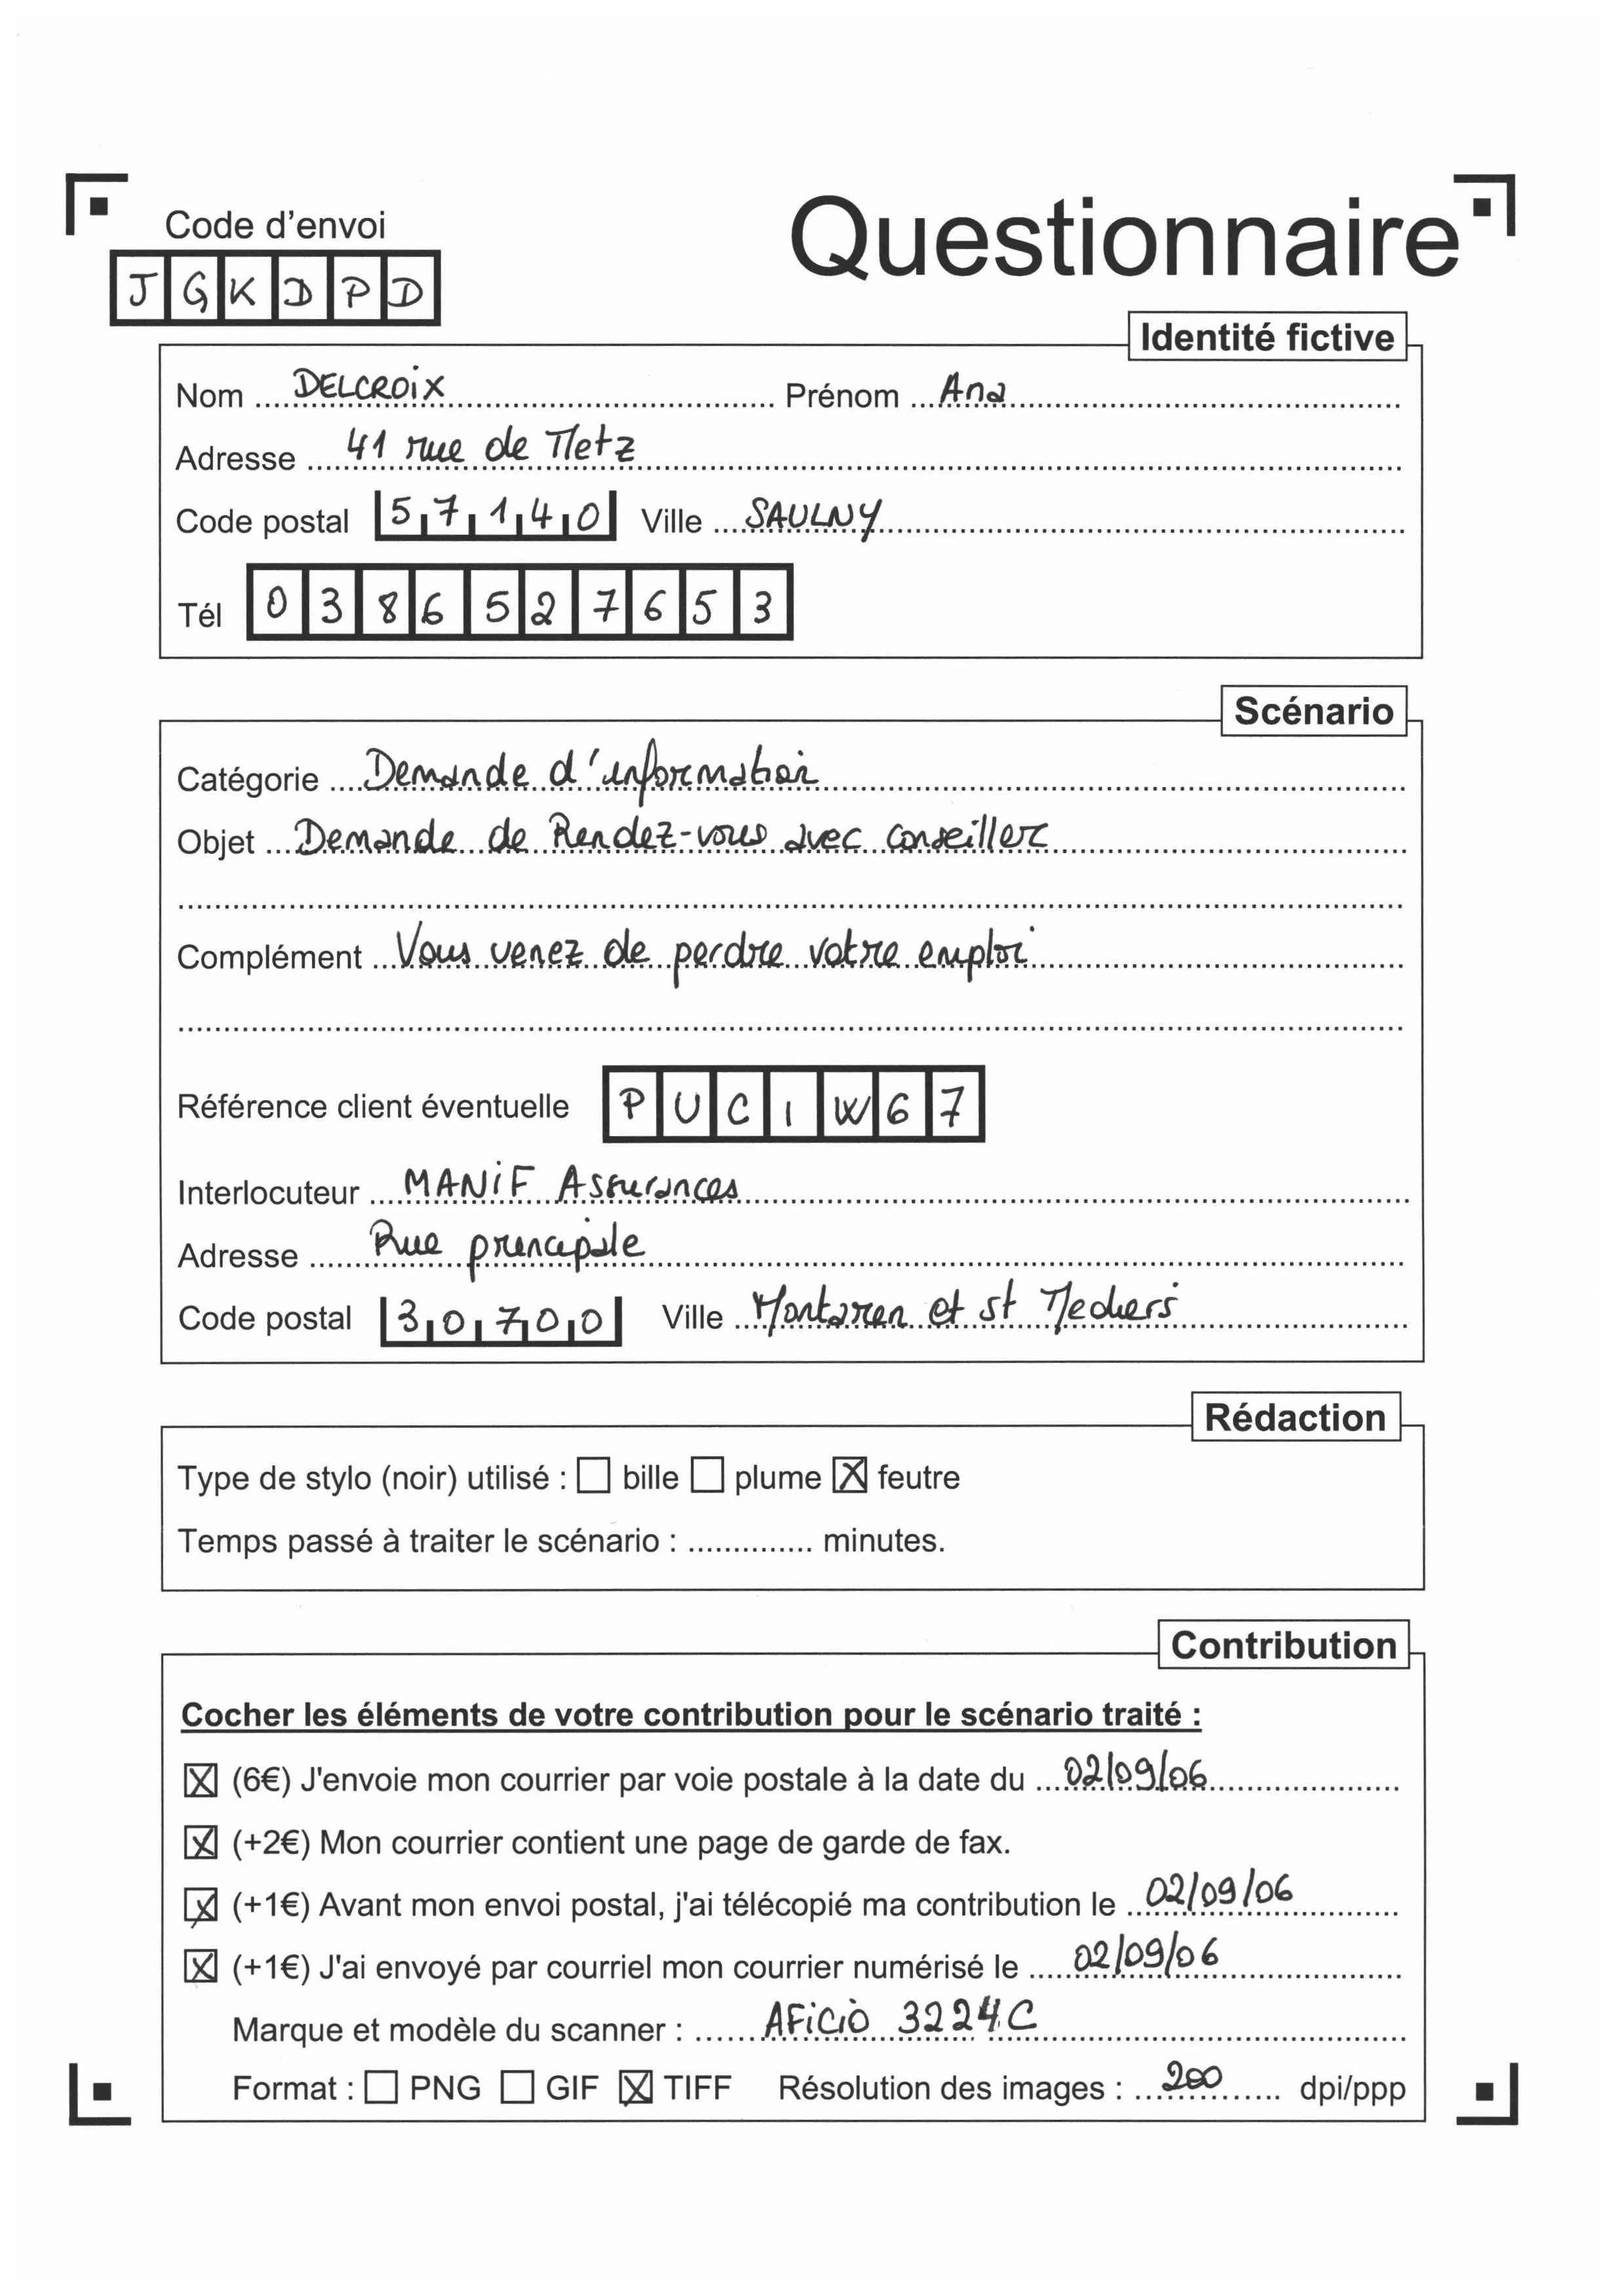 Code d'envoi
Questionnaire
JGKDPD
Identité fictive
Nom DELCROIX Prénom Ana
Adresse 41 rue de Metz
Code postal 57140 Ville SAULNY
Tél 0386527653
Scénario
Catégorie Demande d'information
Objet Demande de Rendez-vous avec conseiller
Complément Vous venez de perdre votre emploi
Référence client éventuelle PUCIW67
Interlocuteur MANIF Assurances
Adresse Rue principale
Code postal 30700 Ville Montaren et st Mediers
Rédaction
Type de stylo (noir) utilisé : bille plume X feutre
Temps passé à traiter le scénario : .............. minutes.
Contribution
Cocher les éléments de votre contribution pour le scénario traité :
X (6€) J'envoie mon courrier par voie postale à la date du 02/09/06
X (+2€) Mon courrier contient une page de garde de fax.
X (+1€) Avant mon envoi postal, j'ai télécopié ma contribution le 02/09/06
X (+1€) J'ai envoyé par courriel mon courrier numérisé le 02/09/06
Marque et modèle du scanner : AFiCiO 3224C
Format : PNG GIF X TIFF Résolution des images : 200 dpi/ppp